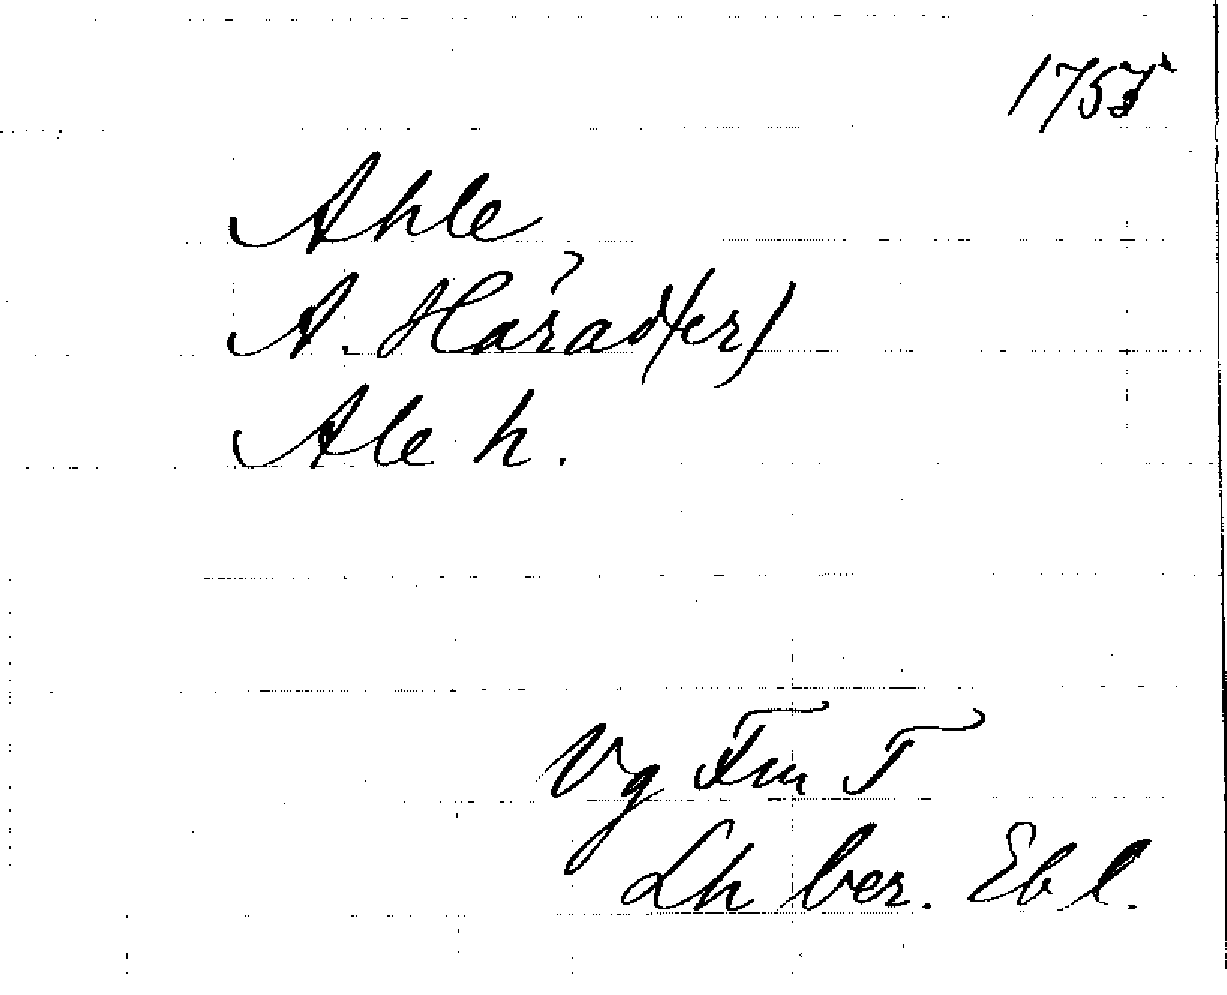 1755
Ahle
A. Härad(er)
Ale h.
Vg Fm T
Lh ber. Ebl.